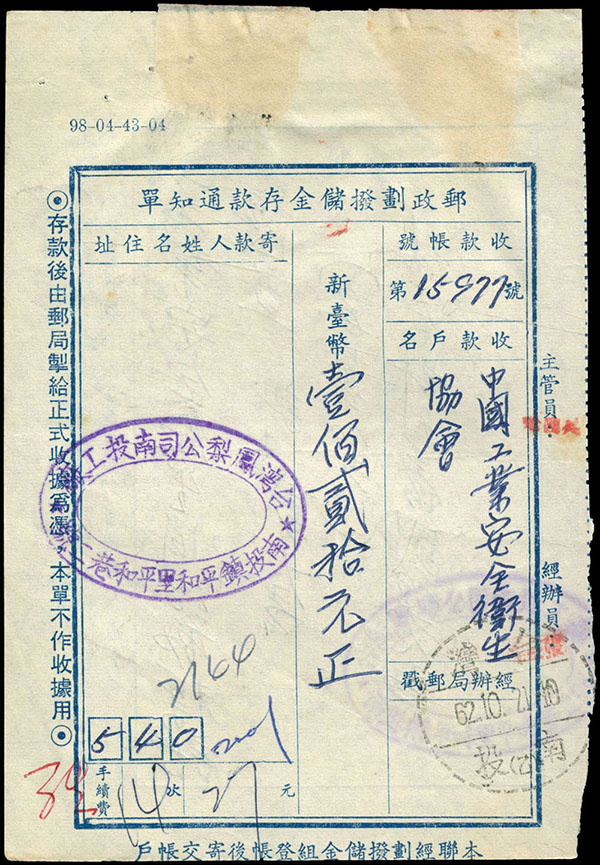 98-04-43-04
郵政劃撥儲金存款通知單
收款帳號
第15977號
收款戶名
中國工業安全衛生
協會
新臺幣壹佰貳拾元正
寄款人姓名住址
台鴻鳳梨公司南投工
南投鎮平和里平和巷一
2144
540
手續費
14次27元
經辦局郵戳
62.10.21.10
南投(乙)
主管員
經辦員
⊙存款後由郵局掣給正式收據為憑，本單不作收據用⊙
本聯經劃撥儲金組登帳後寄交帳戶